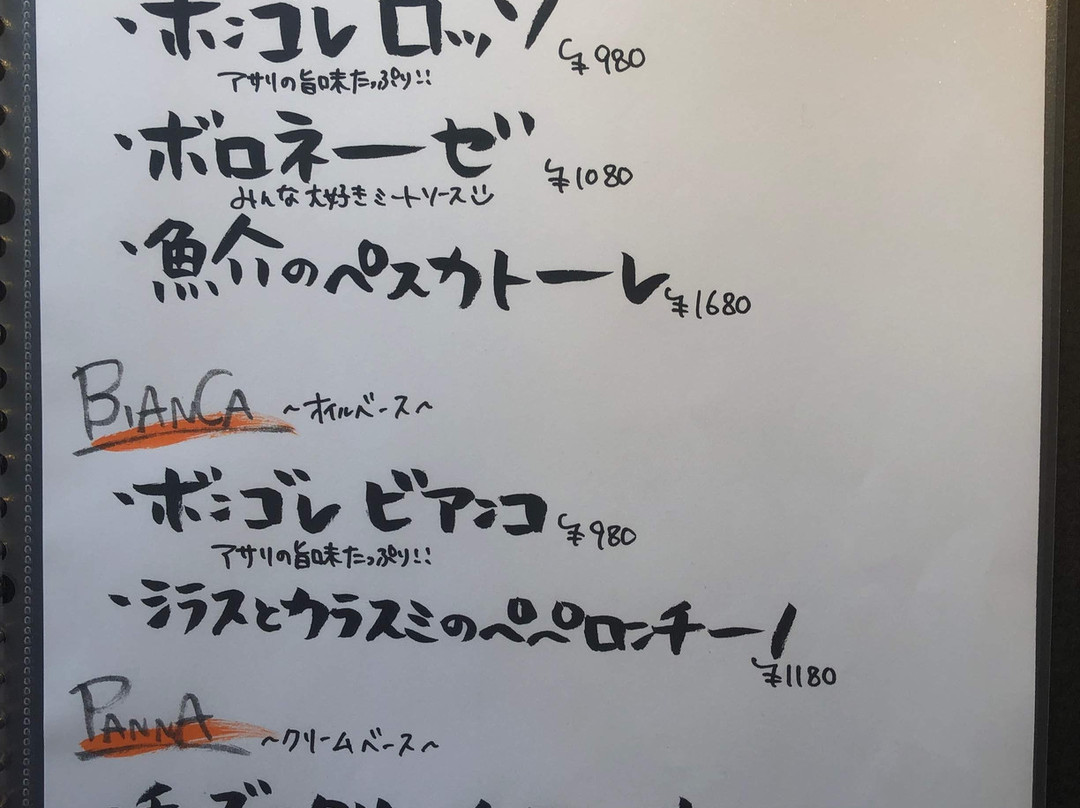 ・ボンゴレ ロッソ ¥980
アサリの旨味たっぷり!!
・ボロネーゼ ¥1080
みんな大好きミートソース
・魚介のペスカトーレ ¥1680
BIANCA ~オイルベース~
・ボンゴレ ビアンコ ¥980
アサリの旨味たっぷり!!
・シラスとカラスミのペペロンチーノ
¥1180
PANNA ~クリームベース~